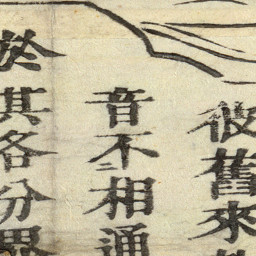 彼舊來
音不相通
於其各分界